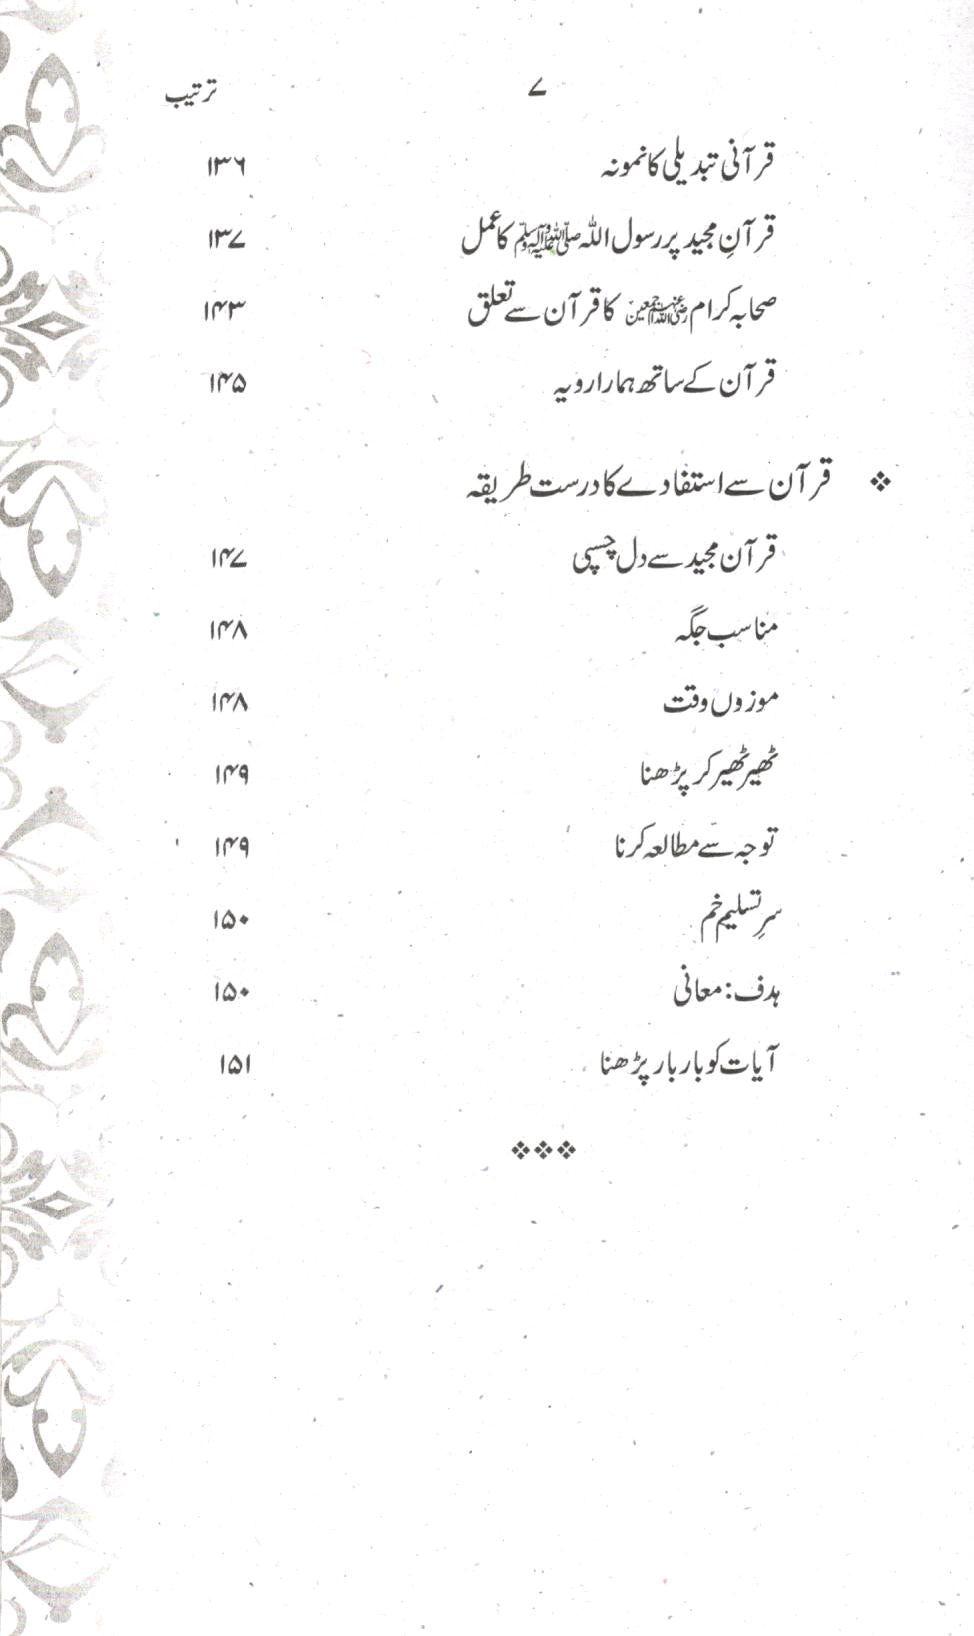 ۷ ترتیب
قرآنی تبدیلی کا نمونہ ۱۳۶
قرآنِ مجید پر رسول اللہ ﷺ کا عمل ۱۳۷
صحابہ کرام رضی اللہ عنہم اجمعین کا قرآن سے تعلق ۱۴۳
قرآن کے ساتھ ہمارا رویہ ۱۴۵
❖ قرآن سے استفادے کا درست طریقہ
قرآن مجید سے دل چسپی ۱۴۷
مناسب جگہ ۱۴۸
موزوں وقت ۱۴۸
ٹھیر ٹھیر کر پڑھنا ۱۴۹
توجہ سے مطالعہ کرنا ۱۴۹
سرِ تسلیم خم ۱۵۰
ہدف: معانی ۱۵۰
آیات کو بار بار پڑھنا ۱۵۱
❖❖❖